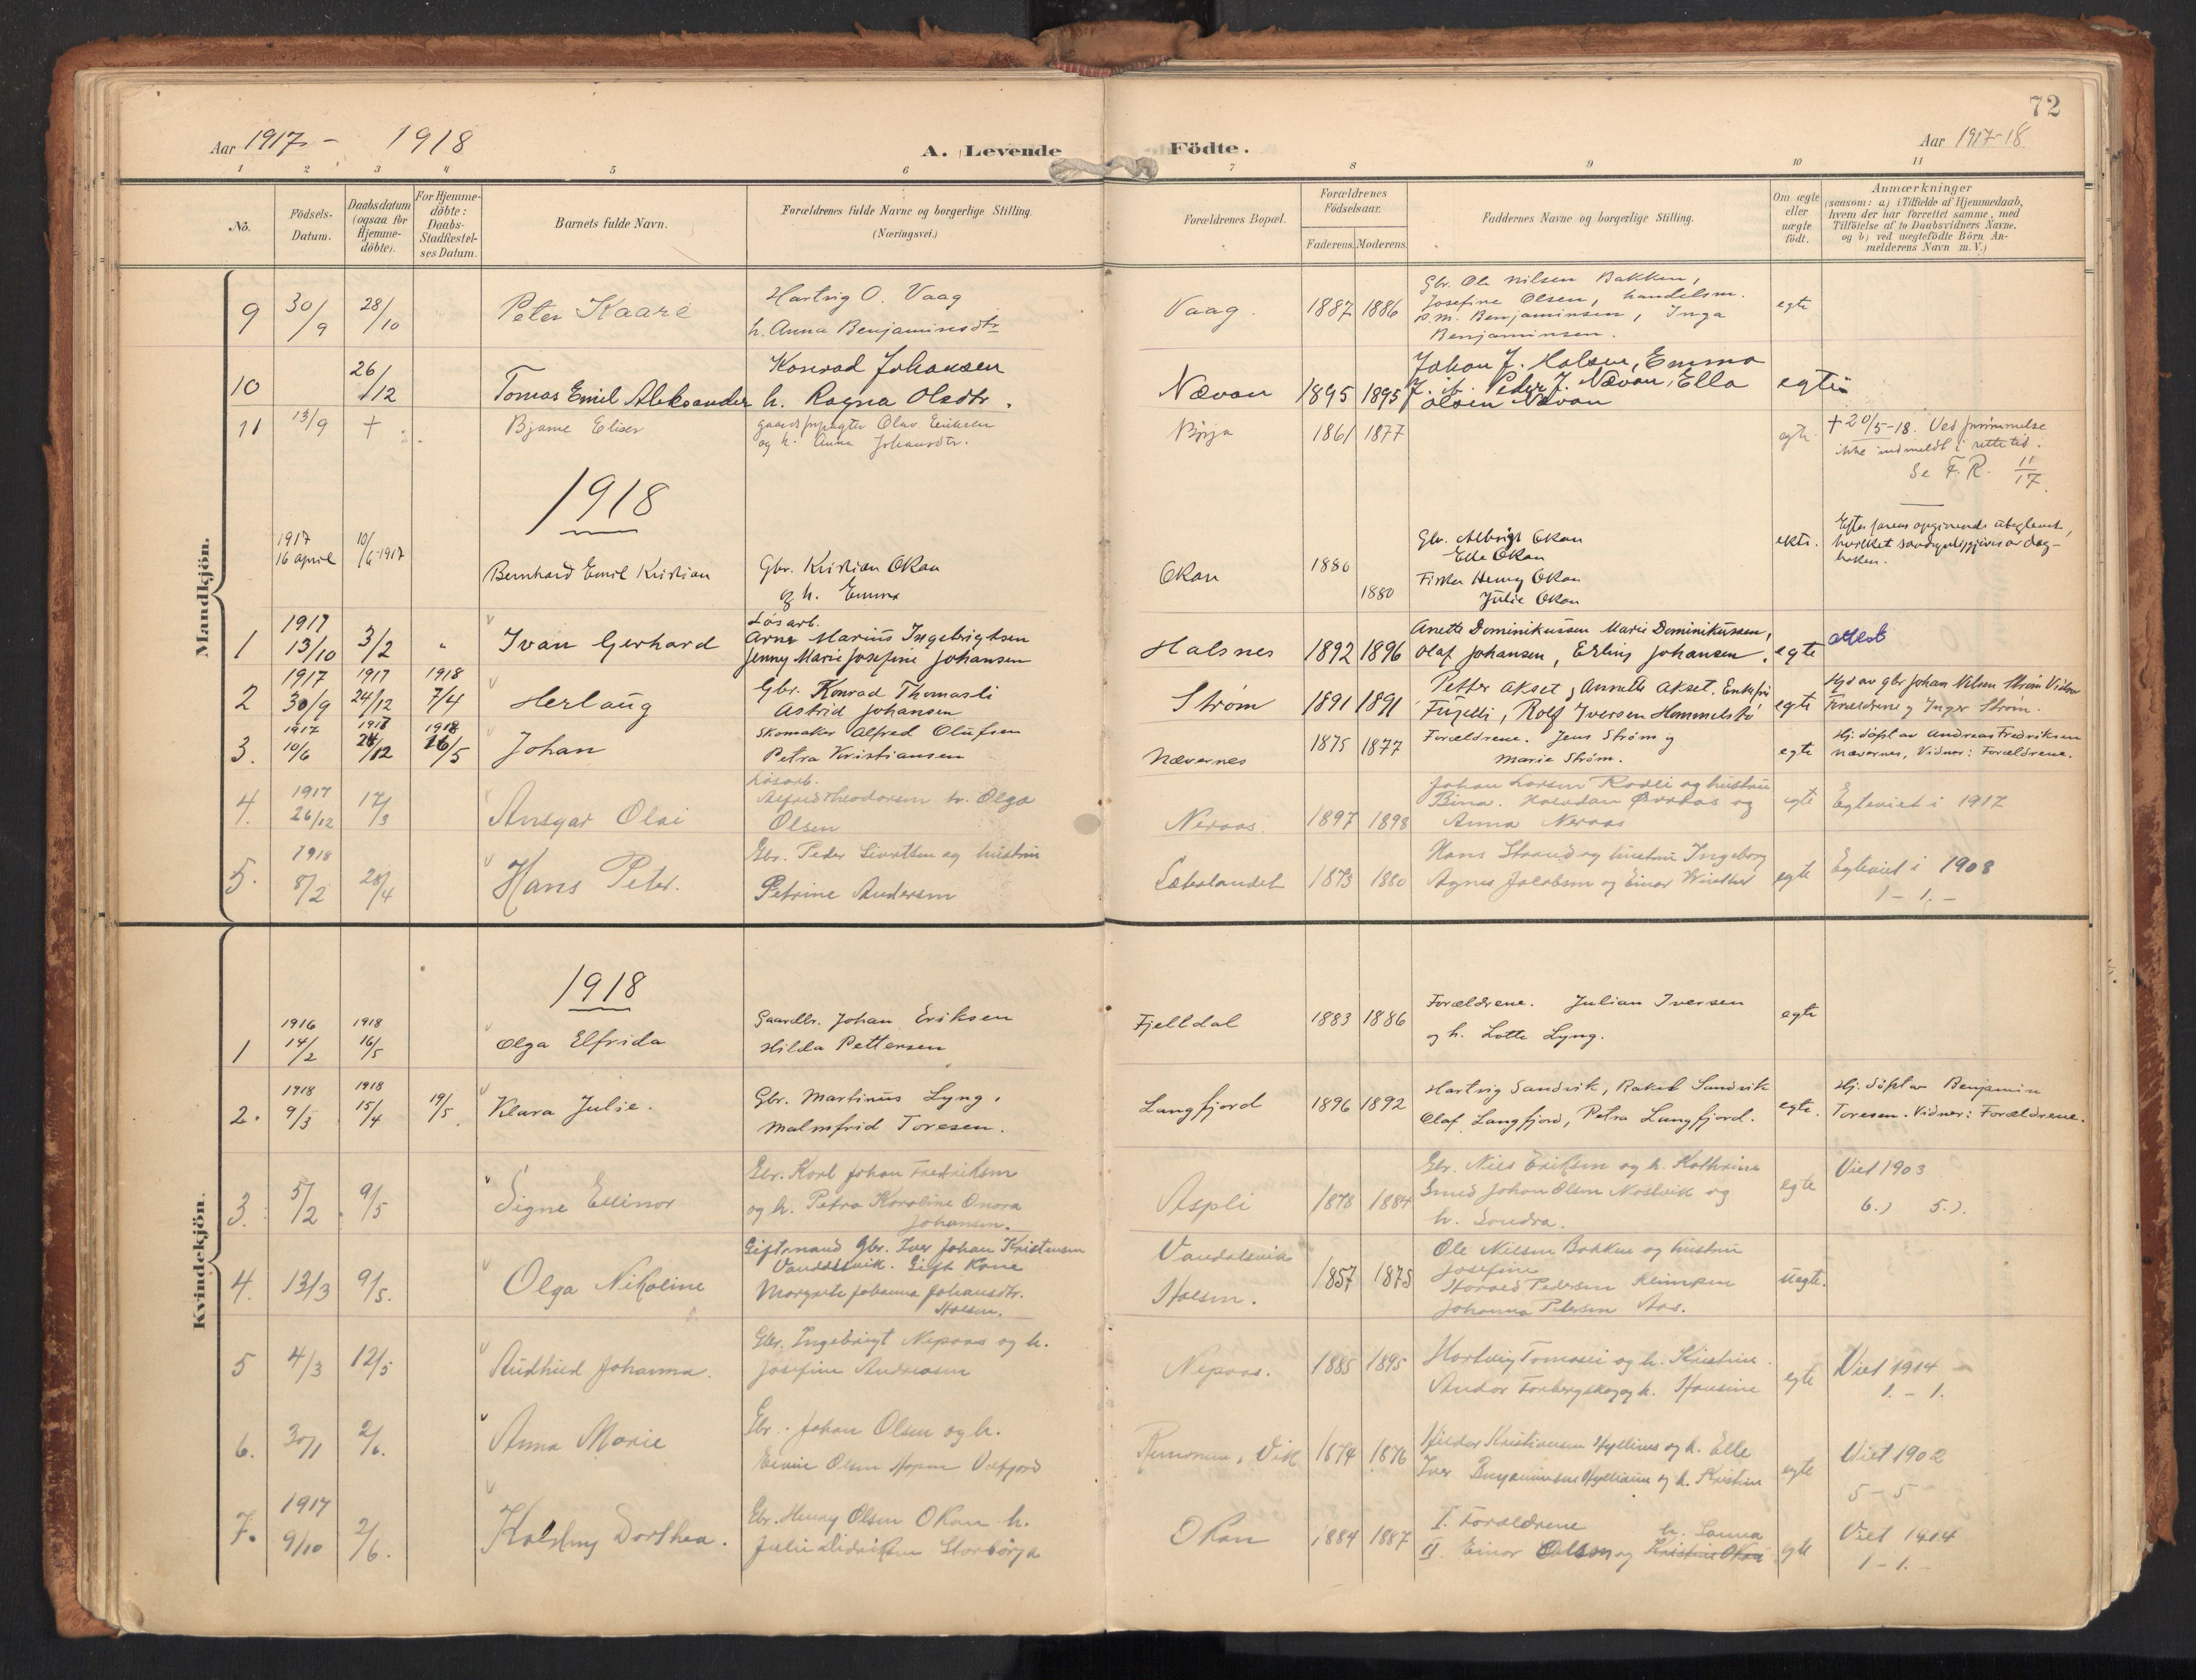 72
Aar 1917 - 1918
A. Levende Födte.
Aar 1917-18
1 2 3 4 5 6 7 8 9 10 11
Nö.
Födsels-Datum.
Daabsdatum (ogsaa for Hjemme-döbte).
For Hjemme-döbte: Daabs-Stadfæstel-ses Datum.
Barnets fulde Navn.
Forældrenes fulde Navne og borgerlige Stilling.
(Næringsvei.)
Forældrenes Bopæl.
Forældrenes Födselsaar.
Faderens. Moderens.
Faddernes Navne og borgerlige Stilling.
Om ægte eller uægte födt.
Anmærkninger
(saasom: a) i Tilfælde af Hjemmedaab, hvem der har forrettet samme, med Tilföielse af to Daabsvidners Navne. og b) ved uægtefödte Börn An-melderens Navn m. V.)
Mandkjön.
9 30/9 28/10 Peter Kaare
Hartvig O. Vaag
h. Anna Benjaminsdtr
Vaag. 1887 1886
Gbr. Ole Nilsen Bakken,
Josefine Olsen, handelsm.
P.M. Benjaminsen, Inga
Benjaminsen.
egte
10 26/12 Tomas Emil Aleksander
Konrad Johansen
h. Ragna Olsdtr.
Nævan 1895 1895
Johan J. Holsen, Emma
Peder J. Nævan, Ella
Olsen Nævan
egte
11 13/9 + Bjarne Eliser
Olav Eriksen
og h. Anna Johansdtr.
Börja 1861 1877
egte
+ 20/5-18. Ved forsömmelse
ikke indmeldt i rette tid.
Se F.R. 11/17
1918
1917
16 april 10/6 1917 Bernhard Emil Kristian
Gbr. Kristian Okan
og h. Emma
Okan 1880 1880
Gbr. Albrigt Okan
Elle Okan
Fisker Henry Okan
Julie Okan
ekte.
1 1917 13/10 3/2 " Ivan Gerhard
Løsarb.
Arne Marius Ingebrigtsen
Jenny Marie Josefine Johansen
Halsnes 1892 1896
Anette Dominikussen Marie Dominikussen,
Olaf Johansen, Erling Johansen.
egte
attest
2 1917 30/9 1917 24/12 1918 7/4 Herlaug
Gbr. Konrad Thomasli
Astrid Johansen
Strøm 1891 1891
Petter Akset, Annette Akset.
Rolf Iversen Hommelstø
egte
Hjd av gbr Johan Nilsen Strøm Vidner
Forældrene og Inger Strøm.
3. 1917 10/6 1918 1918 16/5 Johan
Skomaker Alfred Olufsen
Petra Kristiansen
Nævernes 1875 1877
Forældrene. Jens Strøm og
Marie Strøm.
egte
Hj. döpt av Andreas Fredriksen
Nævernes, Vidner: Forældrene.
4. 1917 26/12 17/3 Ansgar Olai
Løsarb.
Alfred Theodorsen h. Olga
Olsen
Neraas 1897 1898
Johan Larsen Rodli og hustru
Bina. Halvdan og
Anna Neraas
egte
Egteviet i 1917
5. 1918 8/2 28/4 Hans Peter.
Gbr. Peder Sivertsen og hustru
Petrine Andersen
1873 1880
Hans Strand og hustru Ingeborg
Agnes Jakobsen og Einar
egte
Egteviet i 1908
1 - 1. -
Kvindekjön.
1918
1 1916 14/2 1918 16/5 Olga Elfrida
Gaardbr. Johan Eriksen
Hilda Pettersen
Fjelldal 1883 1886
Forældrene. Julian Iversen
og h. Lotte Lyng.
egte
2. 1918 9/3 1918 15/4 19/5. Klara Julie.
Gbr. Martinus Lyng,
Malmfrid Toresen.
Langfjord 1896 1892
Hartvig Sandvik, Rakel Sandvik
Olaf Langfjord, Petra Langfjord.
egte.
Hj. döpt av Benjamin
Toresen. Vidner: Forældrene.
3. 5/2 9/5 Signe Ellinor
Gbr. Karl Johan Fredriksen
og h. Petra Karoline Onora
Johansen.
Aspli 1878 1884
Gbr. Nils Eriksen og h. Kathrine
Smed Johan Olsen Nostvik og
h. Sondra.
egte
Viet 1903
6.) 5.).
4. 13/3 9/5. Olga Nikoline
Gift mand Gbr. Iver Johan Kristensen
Vandalsvik. Gift Kone
Margrete Johanna Johansdtr.
Holsen.
Vandalsvik
Holsen. 1857 1875
Ole Nilsen Bakken og hustru
Josefine
Harald Pedersen
Johanna Petersen Aas.
uegte.
5 4/3 12/5 Rudhild Johanna.
Gbr. Ingebrigt Nepaas og h.
Josefine Andreasen
Nepaas. 1885 1895
Hartvig Tomasli og h. Kristine
Andor h. Hansine
egte
Viet 1914
1. - 1.
6. 30/1 2/6. Anna Marie
Gbr. Johan Olsen og h.
Olsen Velfjord
Vik 1874 1876
Kristiansen og h. Elle
Iver Benjaminsen og h. Kristine
egte
Viet 1902
5 - 5
7. 1917 9/10 2/6. Dorthea.
Gbr. Henry Olsen Okan h.
Julie Didriksen Storbörja
Okan 1884 1887
I. Forældrene
h. Sanna
II Einar Olsen og Kristine Okan
egte
Viet 1914
1 - 1.